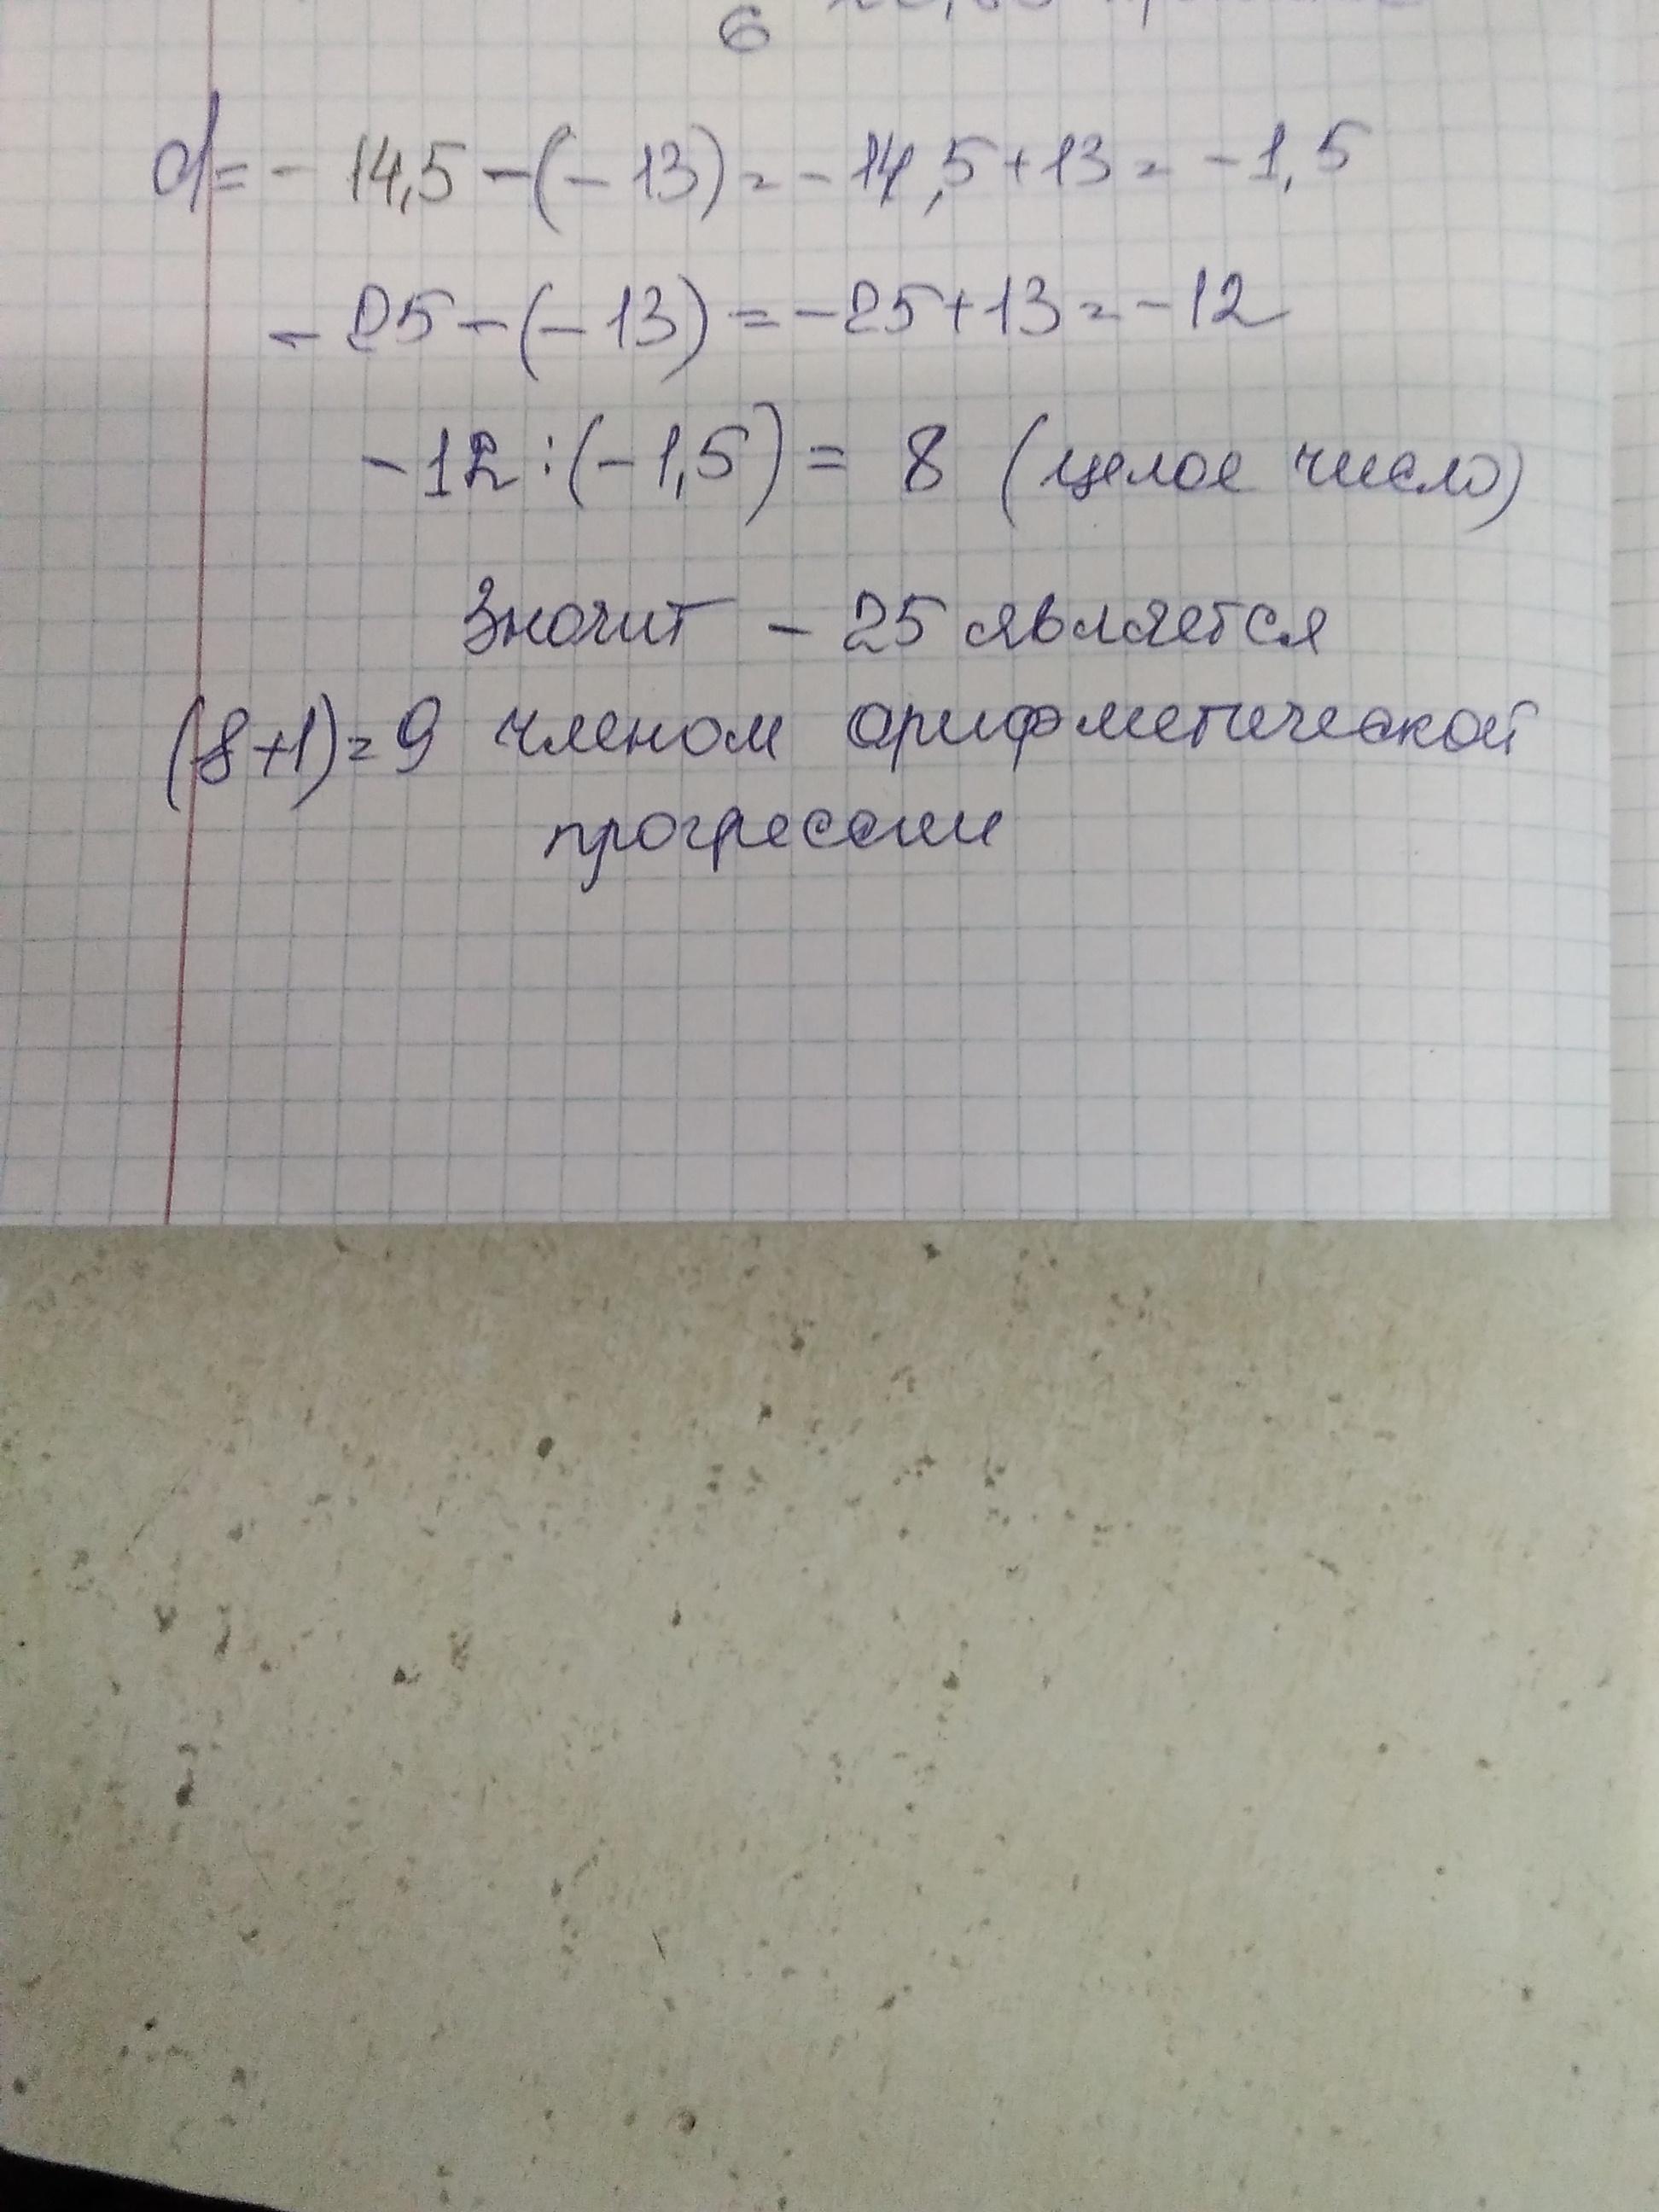 6
d = - 14,5 - (- 13) = - 14,5 + 13 = - 1,5
- 25 - (- 13) = - 25 + 13 = - 12
- 12 : (- 1,5) = 8 (целое число)
Значит - 25 является
(8+1)=9 членом арифметической
прогрессии